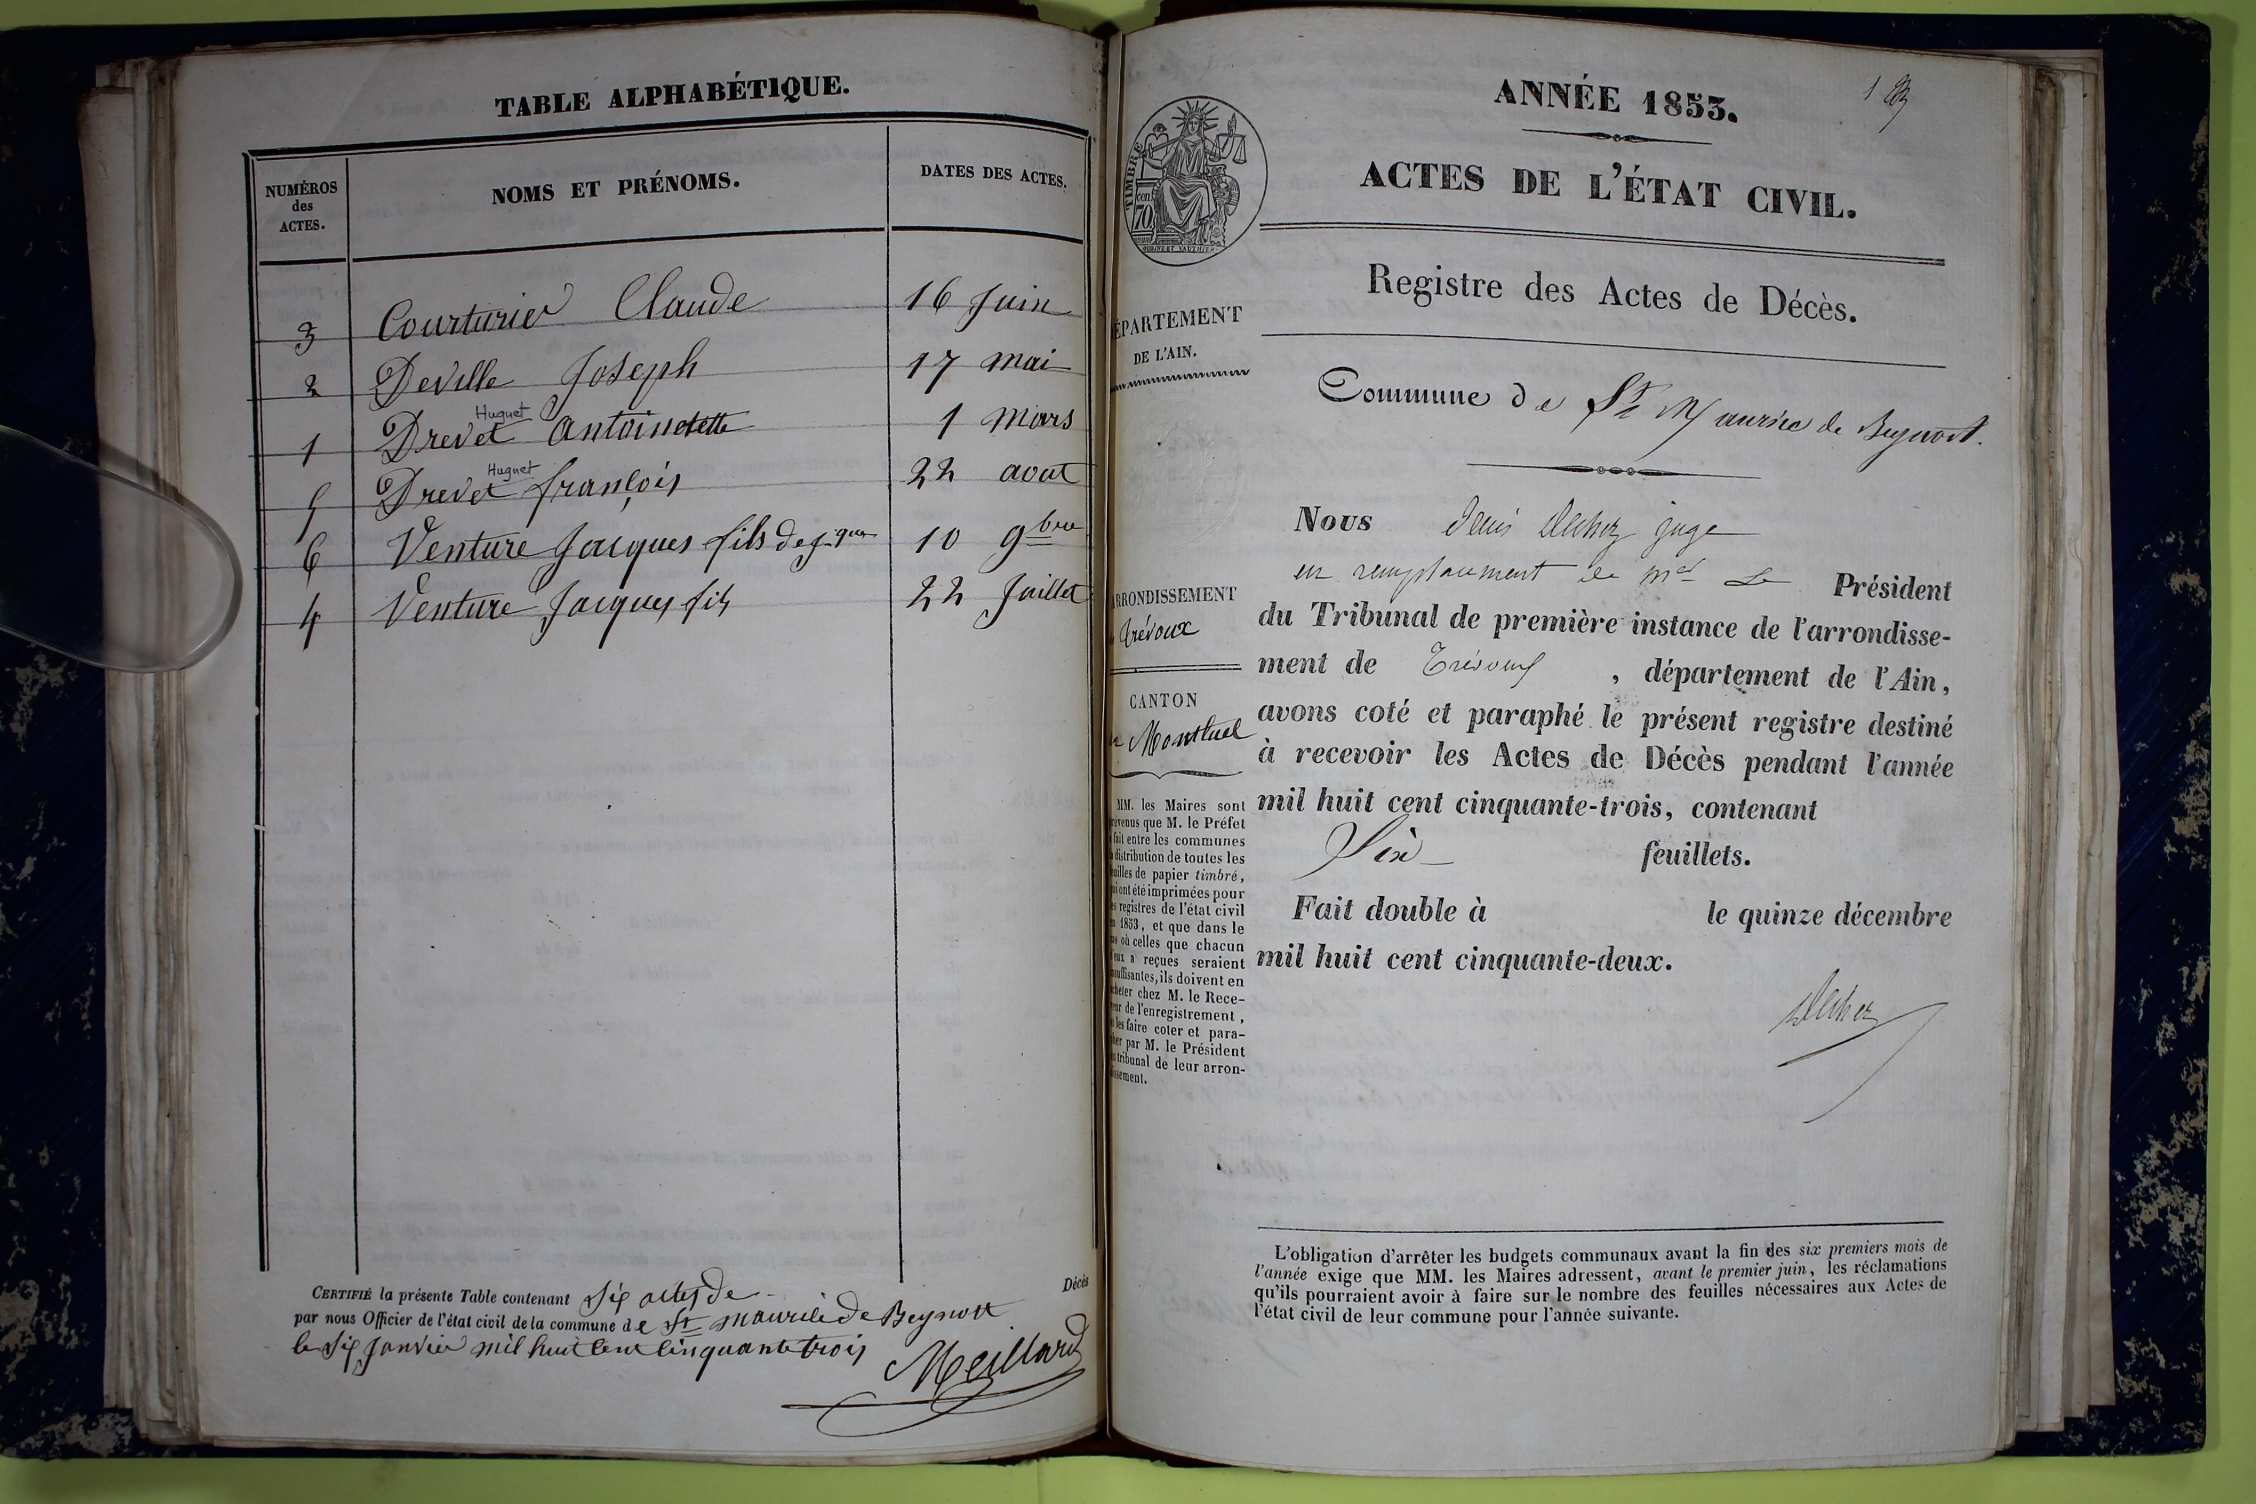 TABLE ALPHABÉTIQUE.
NUMÉROS
des
ACTES.
NOMS ET PRÉNOMS.
DATES DES ACTES.
3 Courturier Claude 16 Juin
2 Deville Joseph 17 mai
Huguet
1 Drevet antoinette 1 mars
Huguet
5 Drevet françois 22 aout
6 Venture Jacques fils de 10 9bre
4 Venture Jacques fils 22 Juillet
CERTIFIÉ la présente Table contenant six actes de Décès
par nous Officier de l'état civil de la commune de St maurice de Beynost
le six Janvier mil huit cent cinquante trois
Meillard
1
ANNÉE 1853.
TIMBRE
cen
70
ACTES DE L'ÉTAT CIVIL.
Registre des Actes de Décès.
ÉPARTEMENT
DE L'AIN.
Commune de St Maurice de Beynost.
Nous Denis juge
en remplacement de Mr Le Président
du Tribunal de première instance de l'arrondisse-
ment de Trévoux, département de l'Ain,
avons coté et paraphé le présent registre destiné
à recevoir les Actes de Décès pendant l'année
mil huit cent cinquante-trois, contenant
Six feuillets.
Fait double à le quinze décembre
mil huit cent cinquante-deux.
RRONDISSEMENT
Trévoux
CANTON
Montluel
MM. les Maires sont
révenus que M. le Préfet
fait entre les communes
distribution de toutes les
euilles de papier timbré,
ui ont été imprimées pour
es registres de l'état civil
n 1853, et que dans le
as où celles que chacun
eux a reçues seraient
nsuffisantes, ils doivent en
cheter chez M. le Rece-
eur de l'enregistrement,
les faire coter et para-
her par M. le Président
tribunal de leur arron-
issement.
L'obligation d'arrêter les budgets communaux avant la fin des six premiers mois de
l'année exige que MM. les Maires adressent, avant le premier juin, les réclamations
qu'ils pourraient avoir à faire sur le nombre des feuilles nécessaires aux Actes de
l'état civil de leur commune pour l'année suivante.